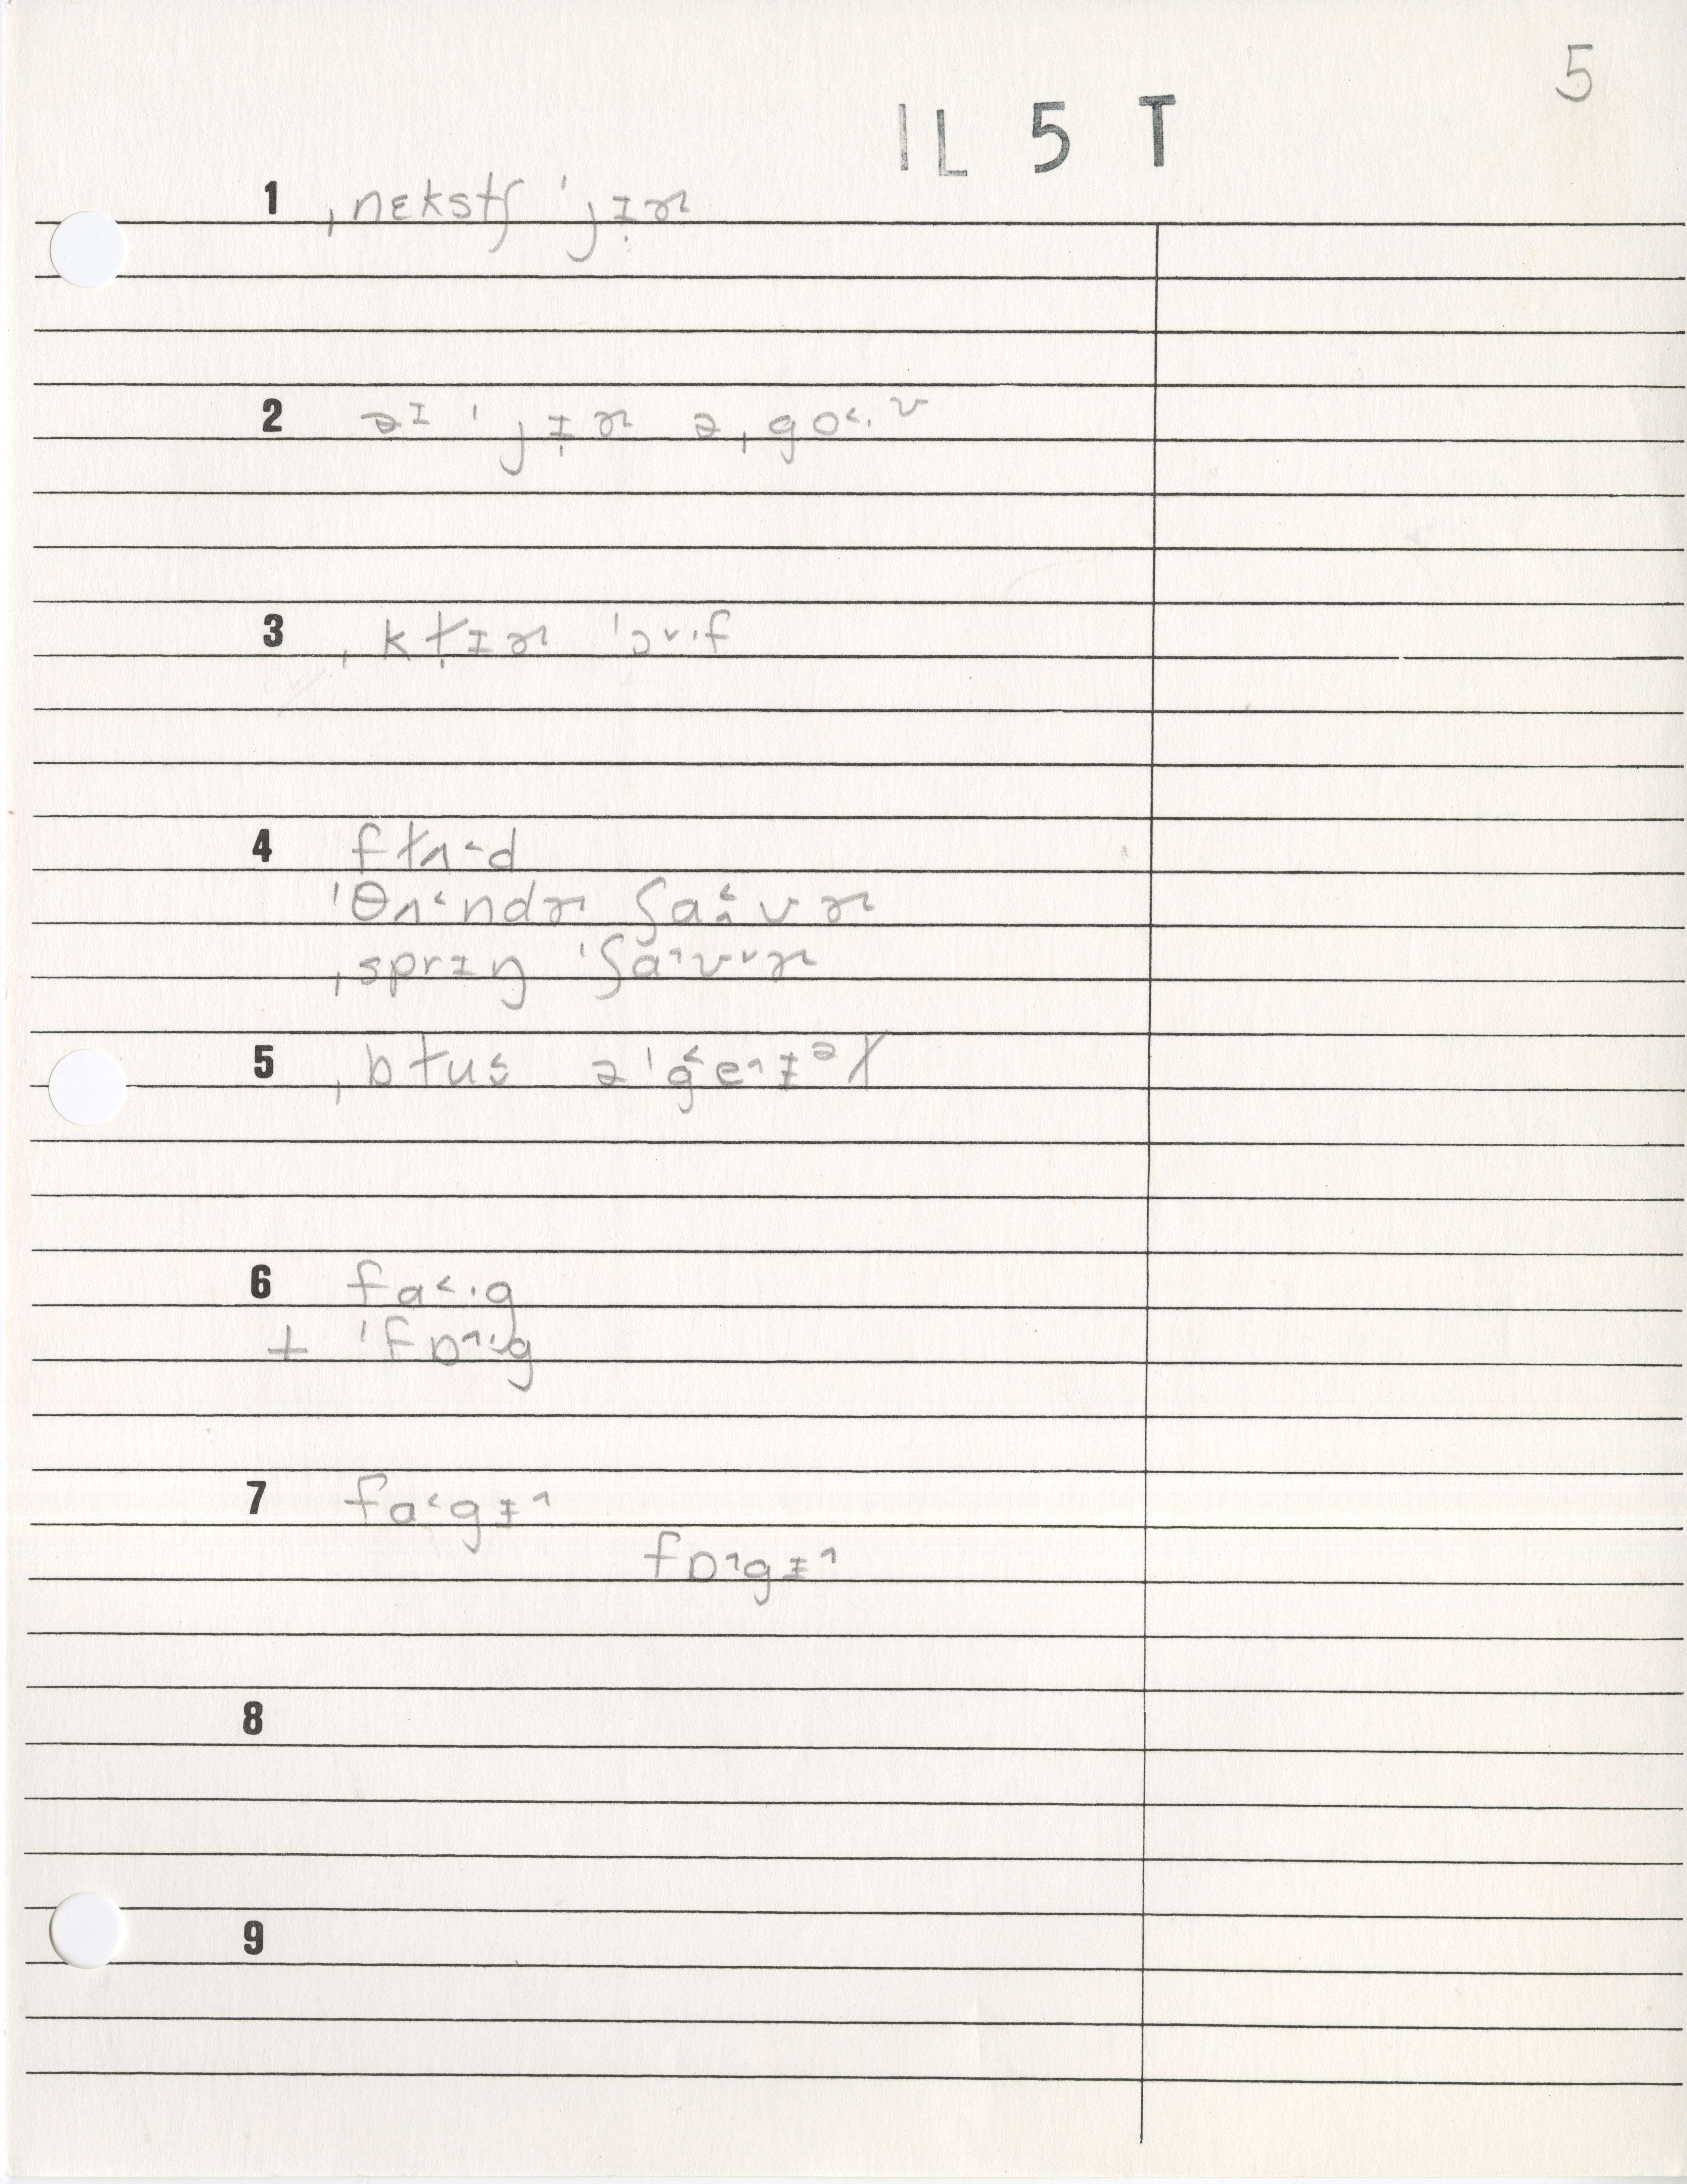 5
IL 5 T
1 ˌnɛkstʃ ˈjɪ̣ɚ
2 əᶦ ˈjɪ̣ɚ əˌgo˂·ᶷ
3 ˌkɫ̣ɪɚ ˈɔ˅·f
4 fɫʌ˂d
ˈθʌ˂ndɚ ʃa˂·ʊɚ
ˌsprɪŋ ˈʃa˄ʊ˅ɚ
5 ˌbɫus əˈge˄ɪᵊɫ
6 fa˂·g
+ ˈfɒ˄·g
7 fa˂gɪ˄
fɒ˄gɪ˄
8
9